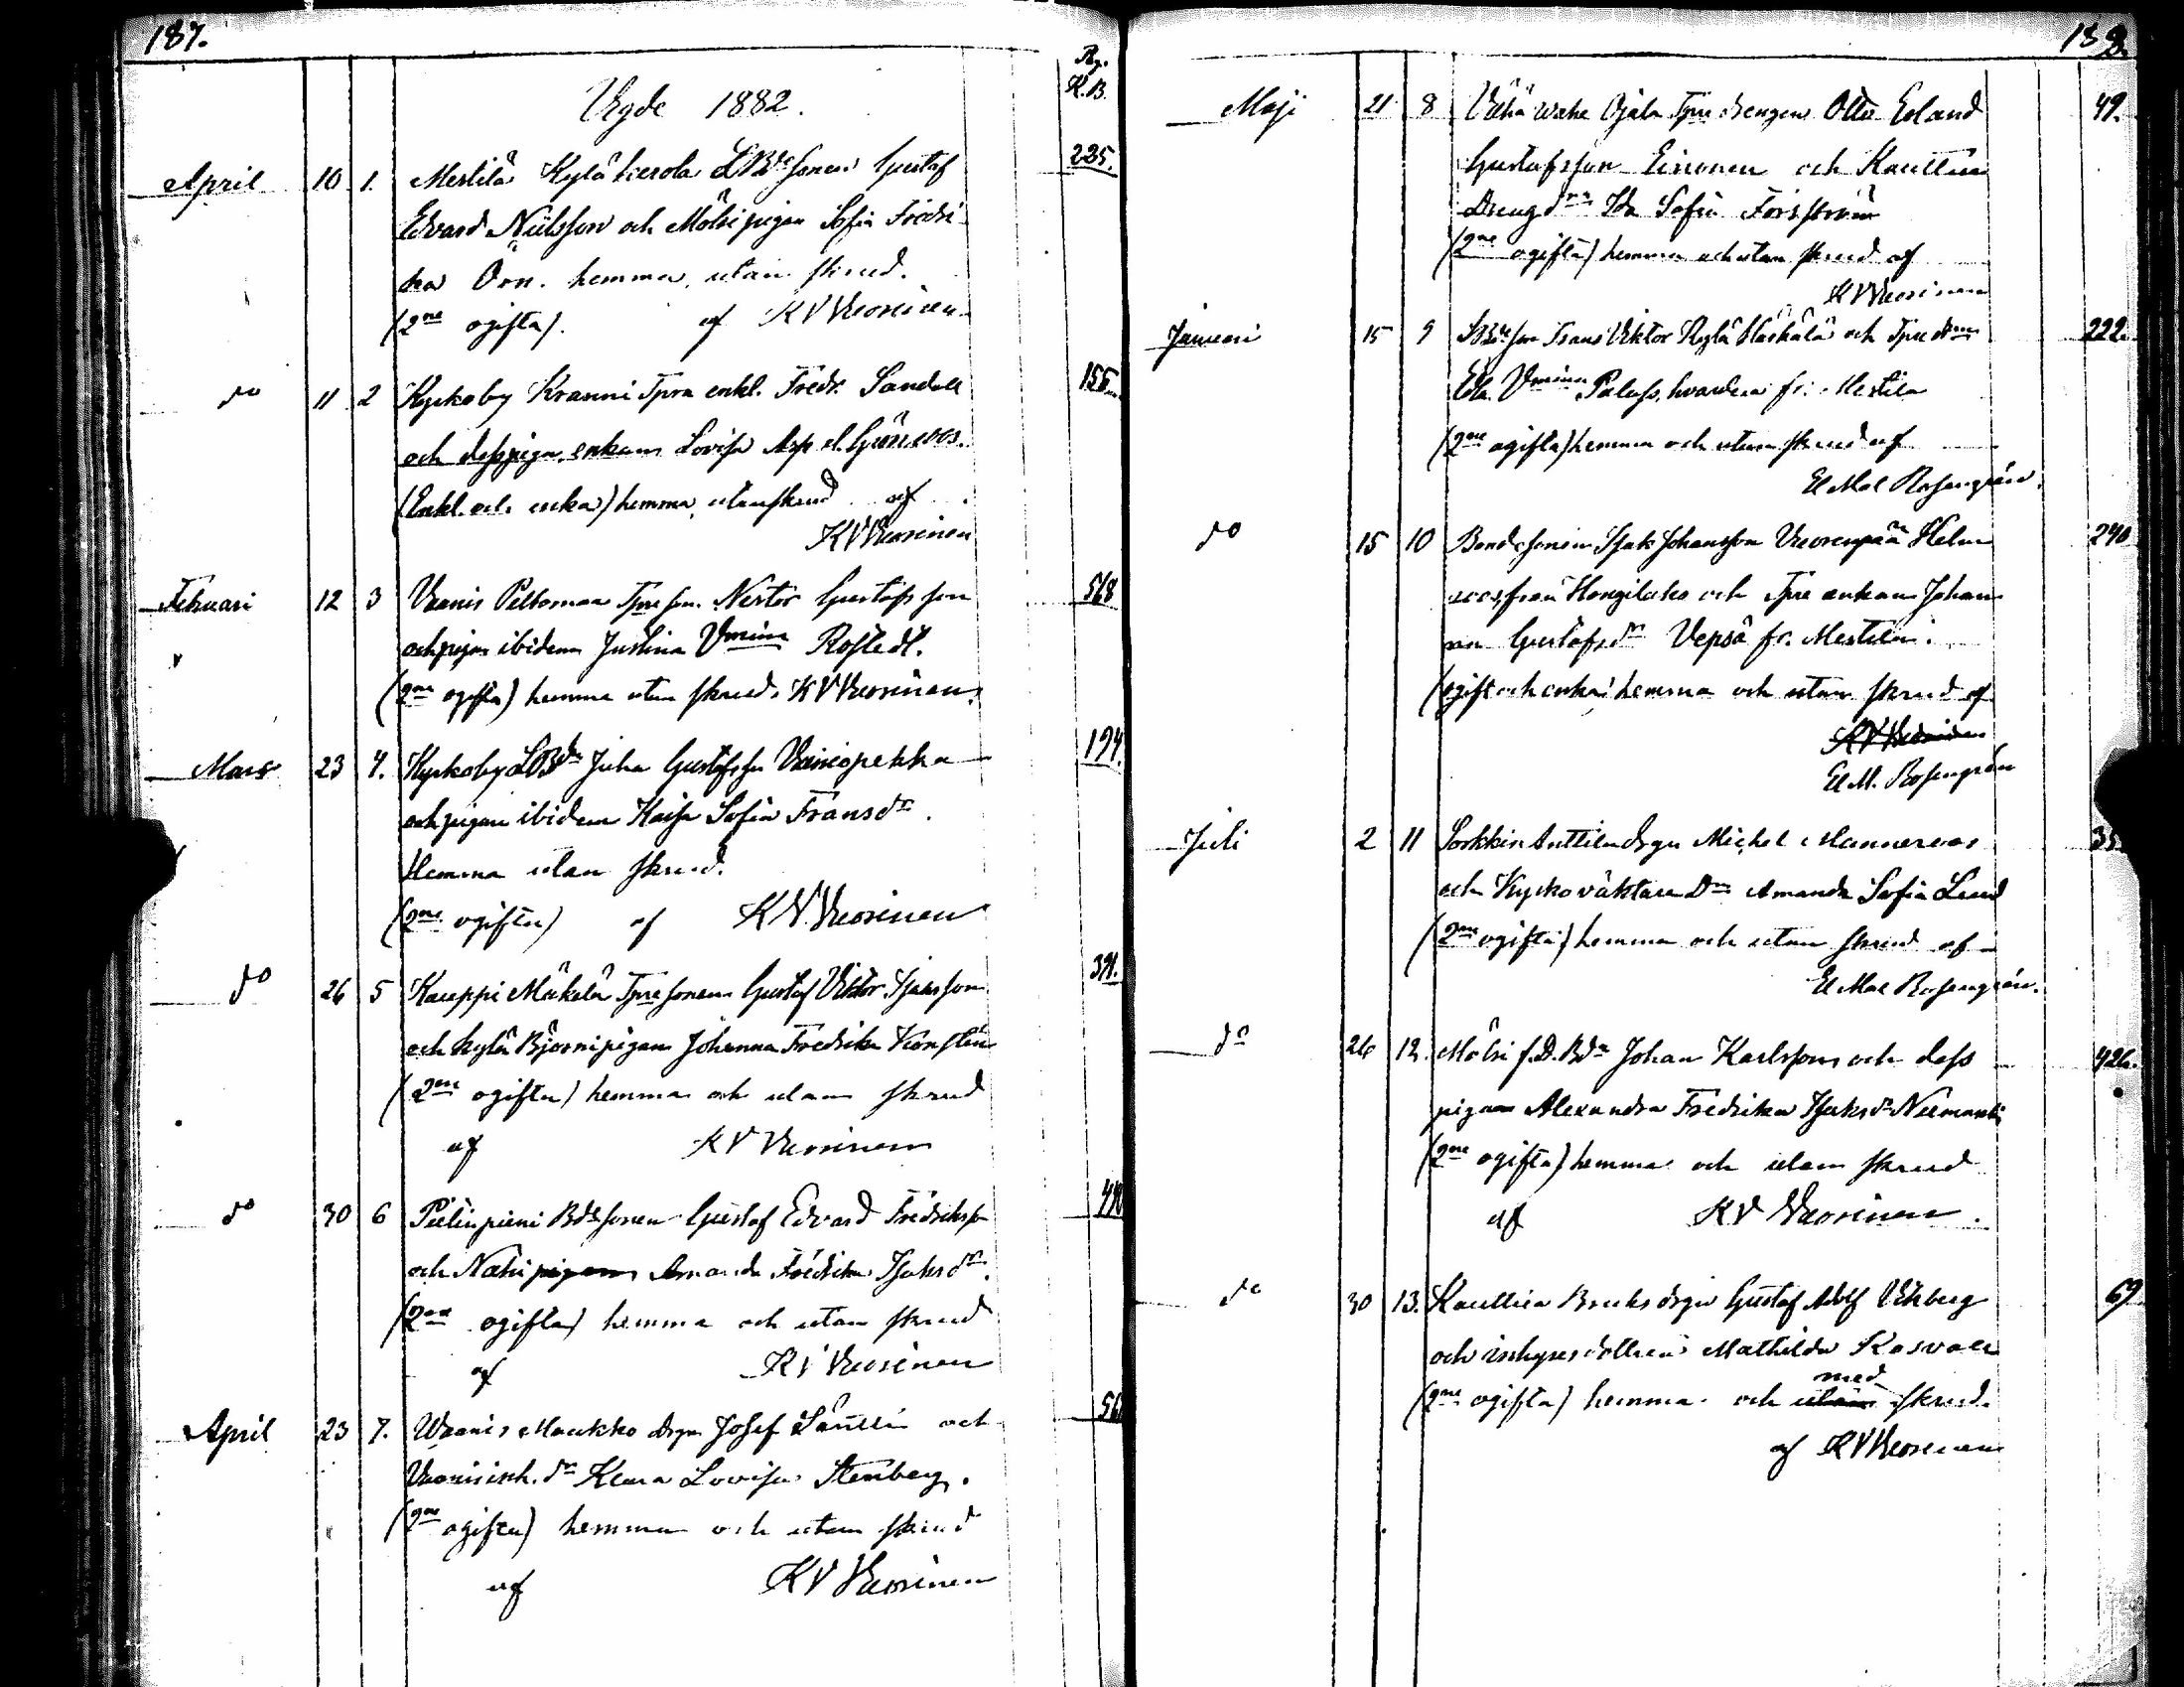 187.
Pag.
K.B.
Vigde 1882.
April 10 1. Mestilä Kylä Kerola LBde sonen Gustaf 225.
Edvard Nielsson och Mölsi pigan Sofia Fredri
ka Örn. hemma, utan skrud.
(2ne ogifta). af KV Vuorinen
do 11 2 Kyrkoby Kranni Tprn enkl. Fredr. Sandell 156
och dess piga, enkan Lovisa Asp
(Enkl. och enka) hemma, utan skrud af
KV Vuorinen
Februari 12 3 Vaanis Peltomaa Tpre son Nestor Gustafsson 568
och pigan ibidem Justina Vmina Rostedt.
(2ne ogifta) hemma utan skrud. KV Vuorinen.
Mars 23 4. Kyrkoby LBdn Juha Gustafsson Vainiopekka 194
och pigan ibidem Kaisa Sofia Fransdr.
Hemma utan skrud.
(2ne ogifta) af KV. Vuorinen
do 26 5 Kauppi Mäkelä Tpre sonen Gustaf Viktor Isaksson 391.
och Kylä Björni pigan Johanna Fredrika Konstin
(2ne ogifta) hemma och utan skrud
af KV Vuorinen
do 30 6 Pielinpieni Bdesonen Gustaf Edvard Fredriksson
och Naki pigan Amanda Fredrika Isaksdr.
(2ne ogifta) hemma och utan skrud
af KV Vuorinen
April 23 7. Waanis Maukko drgn Josef Säntti och 56
Vaanis inh. dr Klara Lovisa Stenberg.
(2ne ogifta) hemma och utan skrud
af KV Vuorinen
188.
Maji 21 8 Vähä wahe Ojala Tpre drengen Otto Erland 49.
Gustafsson Einonen och Kauttua
Drengdrn Ida Sofia Forsström
(2ne ogifta) hemma och utan skrud af
KV Vuorinen
Januari 15 9 LBde son Frans Viktor Kylä Häikälä och Tpre drn 222.
Eda Vmina Paluss, hvardera fr. Mestila
(2ne ogifta) hemma och utan skrud af
El Mal Rosengrén.
do 15 10 Bondesonen Isak Johansson Vuorenpää Helm 240
roos, från Hongilako och Tpre enkan Johan
na Gustafsdr Vepsä fr. Mestila.
(ogift och enka) hemma och utan skrud af
KV Vuorinen
El M. Rosengrén
Juli 2 11 Sorkkis Anttila drgn Michel Mannerroos 35
och Kyrkoväktare Drn Amanda Sofia Lund
(2ne ogifta) hemma och utan skrud af
El Mal Rosengrén.
do 26 12. Mölsi f.d. Bdn Johan Karlsson och dess 426.
pigan Alexandra Fredrika Isaksdr
(2ne ogifta) hemma och utan skrud
af KV Vuorinen.
do 30 13. Kauttua Bruks drgn Gustaf Adolf Vikberg 69
och inhyses dottren Mathilda Rosvall
med
(2ne ogifta) hemma och utan skrud.
af KV Vuorinen